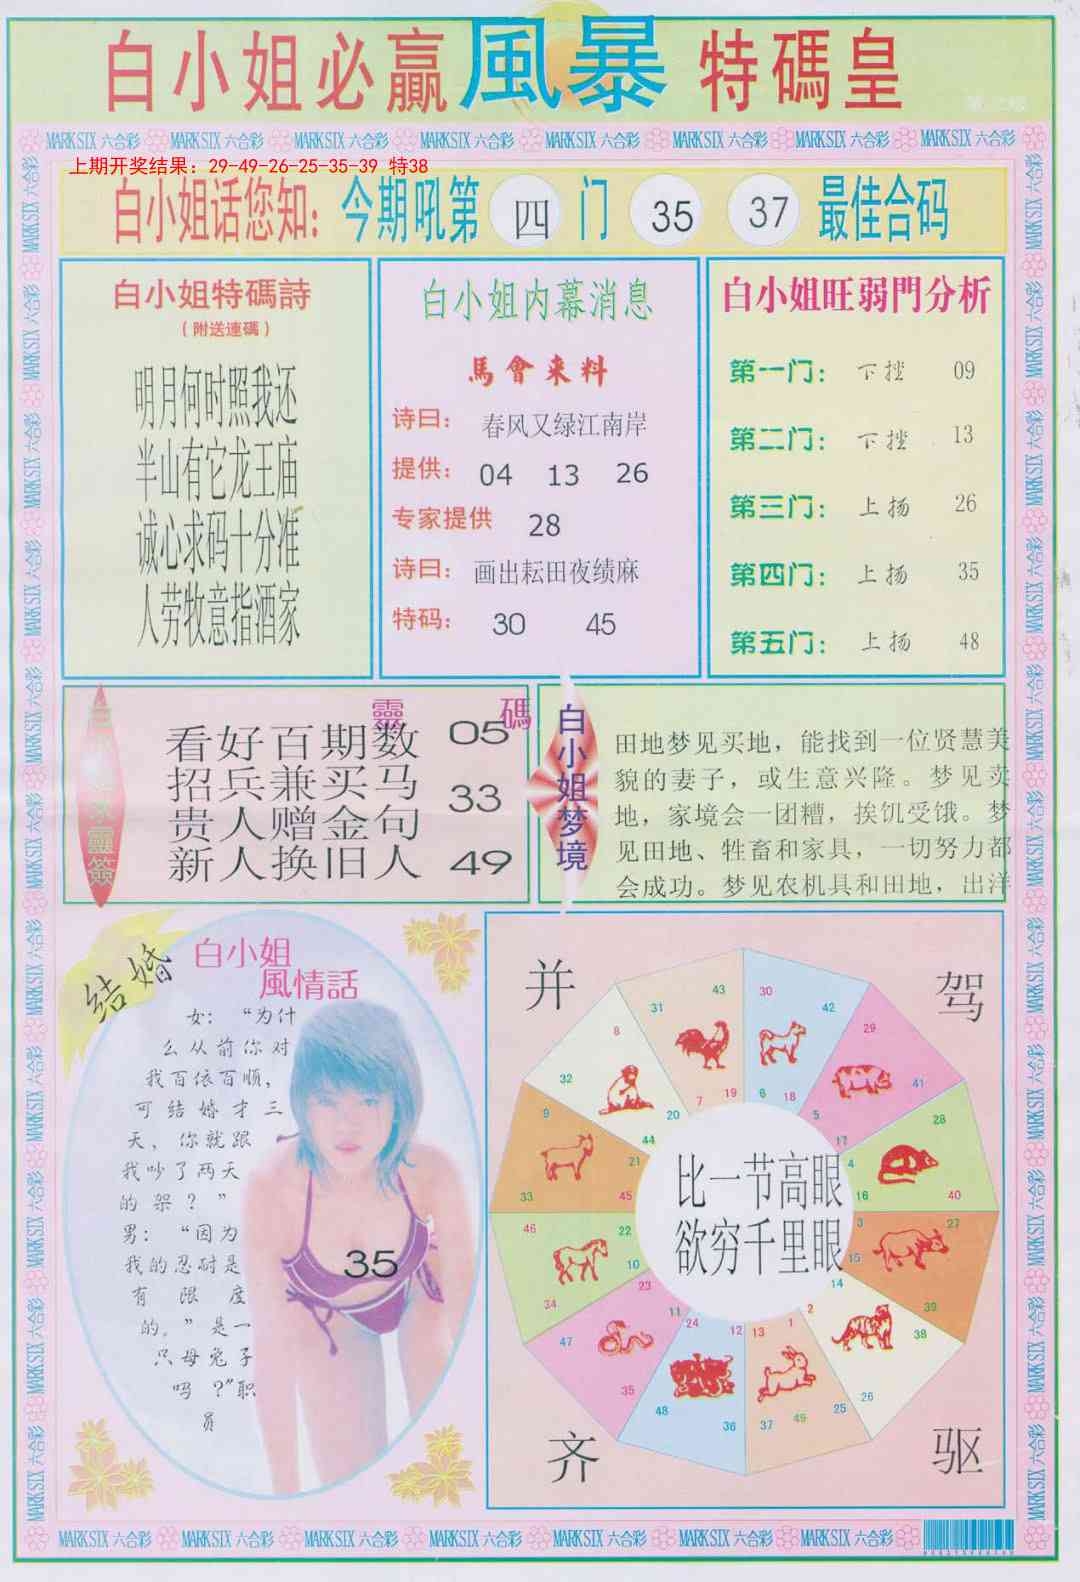 白小姐必贏風暴特碼皇
MARK SIX 六合彩 MARK SIX 六合彩 MARK SIX 六合彩 MARK SIX 六合彩 MARK SIX 六合彩 MARK SIX 六合彩 MARK SIX 六合彩 MARK SIX 六合彩
上期开奖结果：29-49-26-25-35-39 特38
白小姐话您知：今期吼第 四 门 35 37 最佳合码
白小姐特碼詩
(附送連碼)
明月何时照我还
半山有它龙王庙
诚心求码十分准
人劳牧意指酒家
白小姐内幕消息
馬會来料
诗曰：春风又绿江南岸
提供：04 13 26
专家提供 28
诗曰：画出耘田夜绩麻
特码：30 45
白小姐旺弱門分析
第一门：下挫 09
第二门：下挫 13
第三门：上扬 26
第四门：上扬 35
第五门：上扬 48
靈碼
看好百期数 05
招兵兼买马
33
贵人赠金句
新人换旧人 49
白小姐梦境
田地梦见买地，能找到一位贤慧美
貌的妻子，或生意兴隆。梦见卖
地，家境会一团糟，挨饥受饿。梦
见田地、牲畜和家具，一切努力都
会成功。梦见农机具和田地，出洋
结婚
白小姐
風情話
女：“为什
么从前你对
我百依百顺，
可结婚才三
天，你就跟
我吵了两天
的架？”
男：“因为
我的忍耐是
有限度
的。”是一
只母兔子
吗？”职
员
35
并 驾
43 30
31 42
8 29
32 41
7 19 6 18
20 5
9 28
44 17
21 4
33 45 16 40
比一节高眼
欲穷千里眼
46 22 3 27
10 15
34 23 14 39
11 24 12 13 1 2
47 38
35 26
48 36 37 49 25
齐 驱
MARK SIX 六合彩 MARK SIX 六合彩 MARK SIX 六合彩 MARK SIX 六合彩 MARK SIX 六合彩 MARK SIX 六合彩 MARK SIX 六合彩